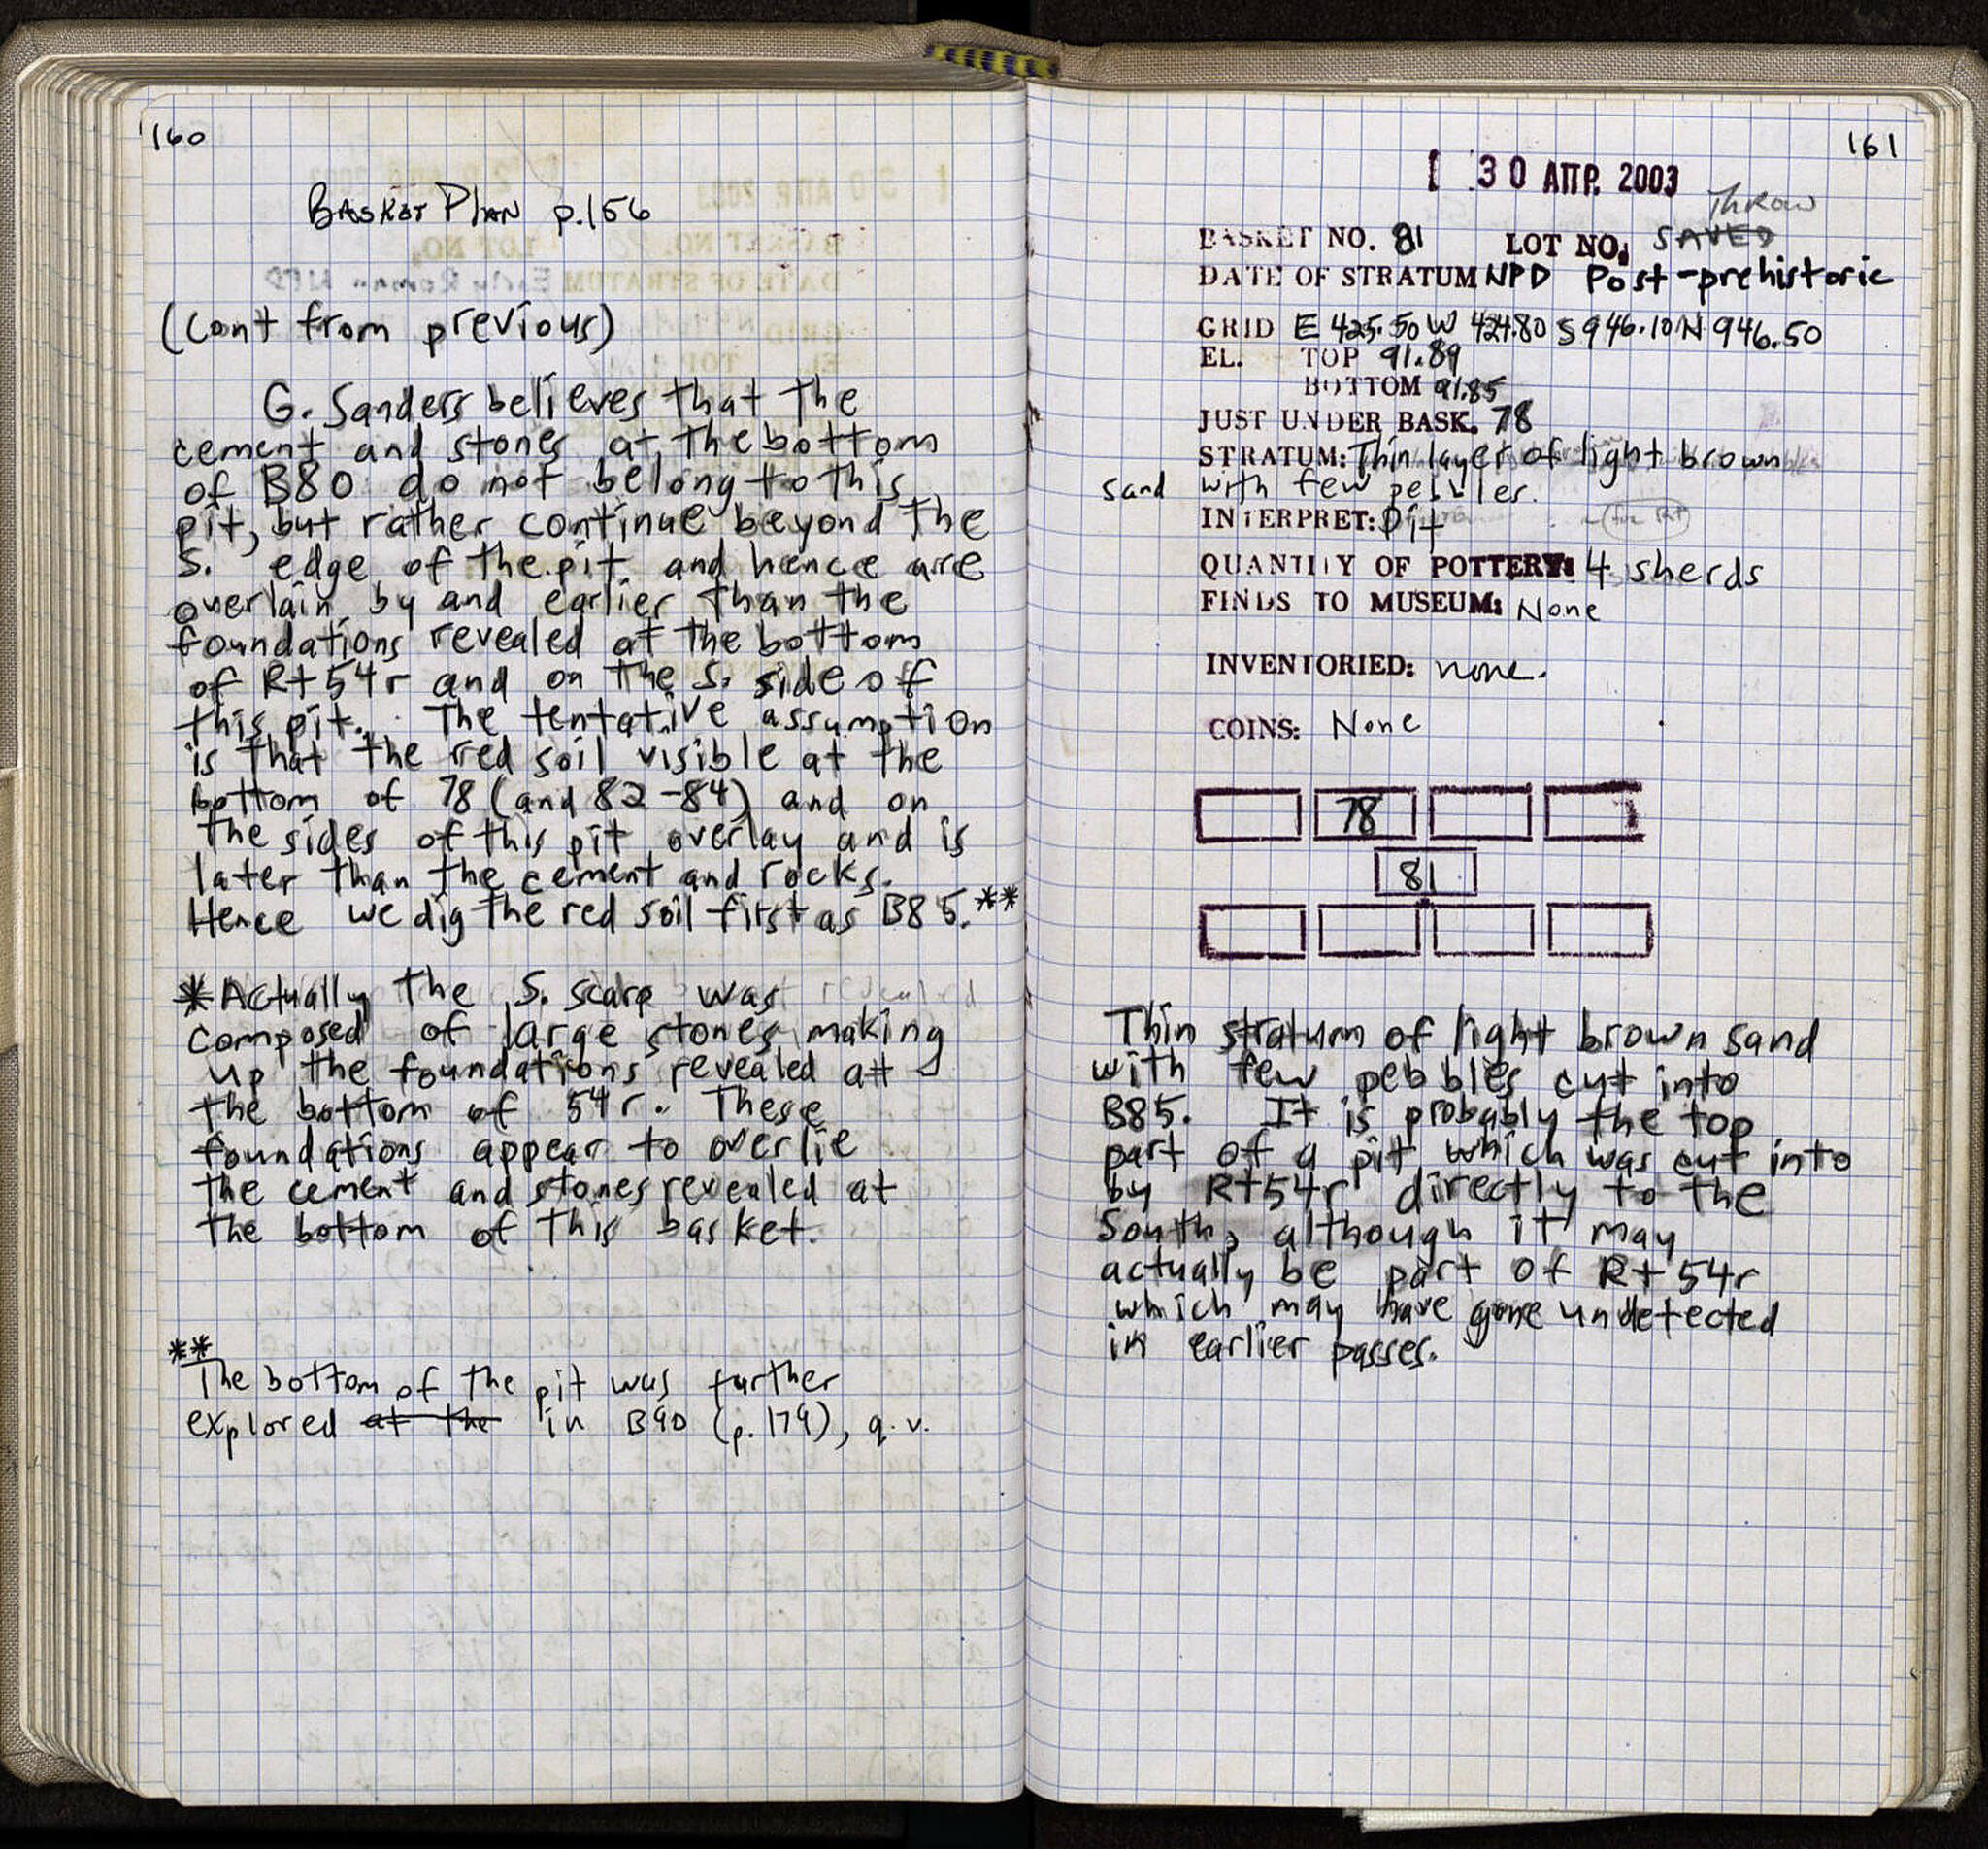 160
BASKET PLAN p.156
(cont from previous)
G. Sanders believes that the
cement and stones at the bottom
of B80 do not belong to this
pit, but rather continue beyond the
S. edge of the pit and hence are
overlain by and earlier than the
foundations revealed at the bottom
of R+54r and on the S. side of
this pit. The tentative assumption
is that the red soil visible at the
bottom of 78 (and 82-84) and on
the sides of this pit overlay and is
later than the cement and rocks.
Hence we dig the red soil first as B85.**
*Actually the S. scarp was
composed of large stones making
up the foundations revealed at
the bottom of 54r. These
foundations appear to overlie
the cement and stones revealed at
the bottom of this basket.
**
The bottom of the pit was further
explored at the in B90 (p.179), q.v.
161
30 ΑΠΡ. 2003
Throw
BASKET NO. 81 LOT NO. SAVED
DATE OF STRATUM NPD Post-prehistoric
GRID E 425.50 W 424.80 S 946.10 N 946.50
EL. TOP 91.89
BOTTOM 91.85
JUST UNDER BASK. 78
STRATUM: Thin layer of light brown
sand with few pebbles.
INTERPRET: Pit
QUANTITY OF POTTERY: 4 sherds
FINDS TO MUSEUM: None
INVENTORIED: none.
COINS: None
78
81
Thin stratum of light brown sand
with few pebbles cut into
B85. It is probably the top
part of a pit which was cut into
by R+54r directly to the
South, although it may
actually be part of R+54r
which may have gone undetected
in earlier passes.